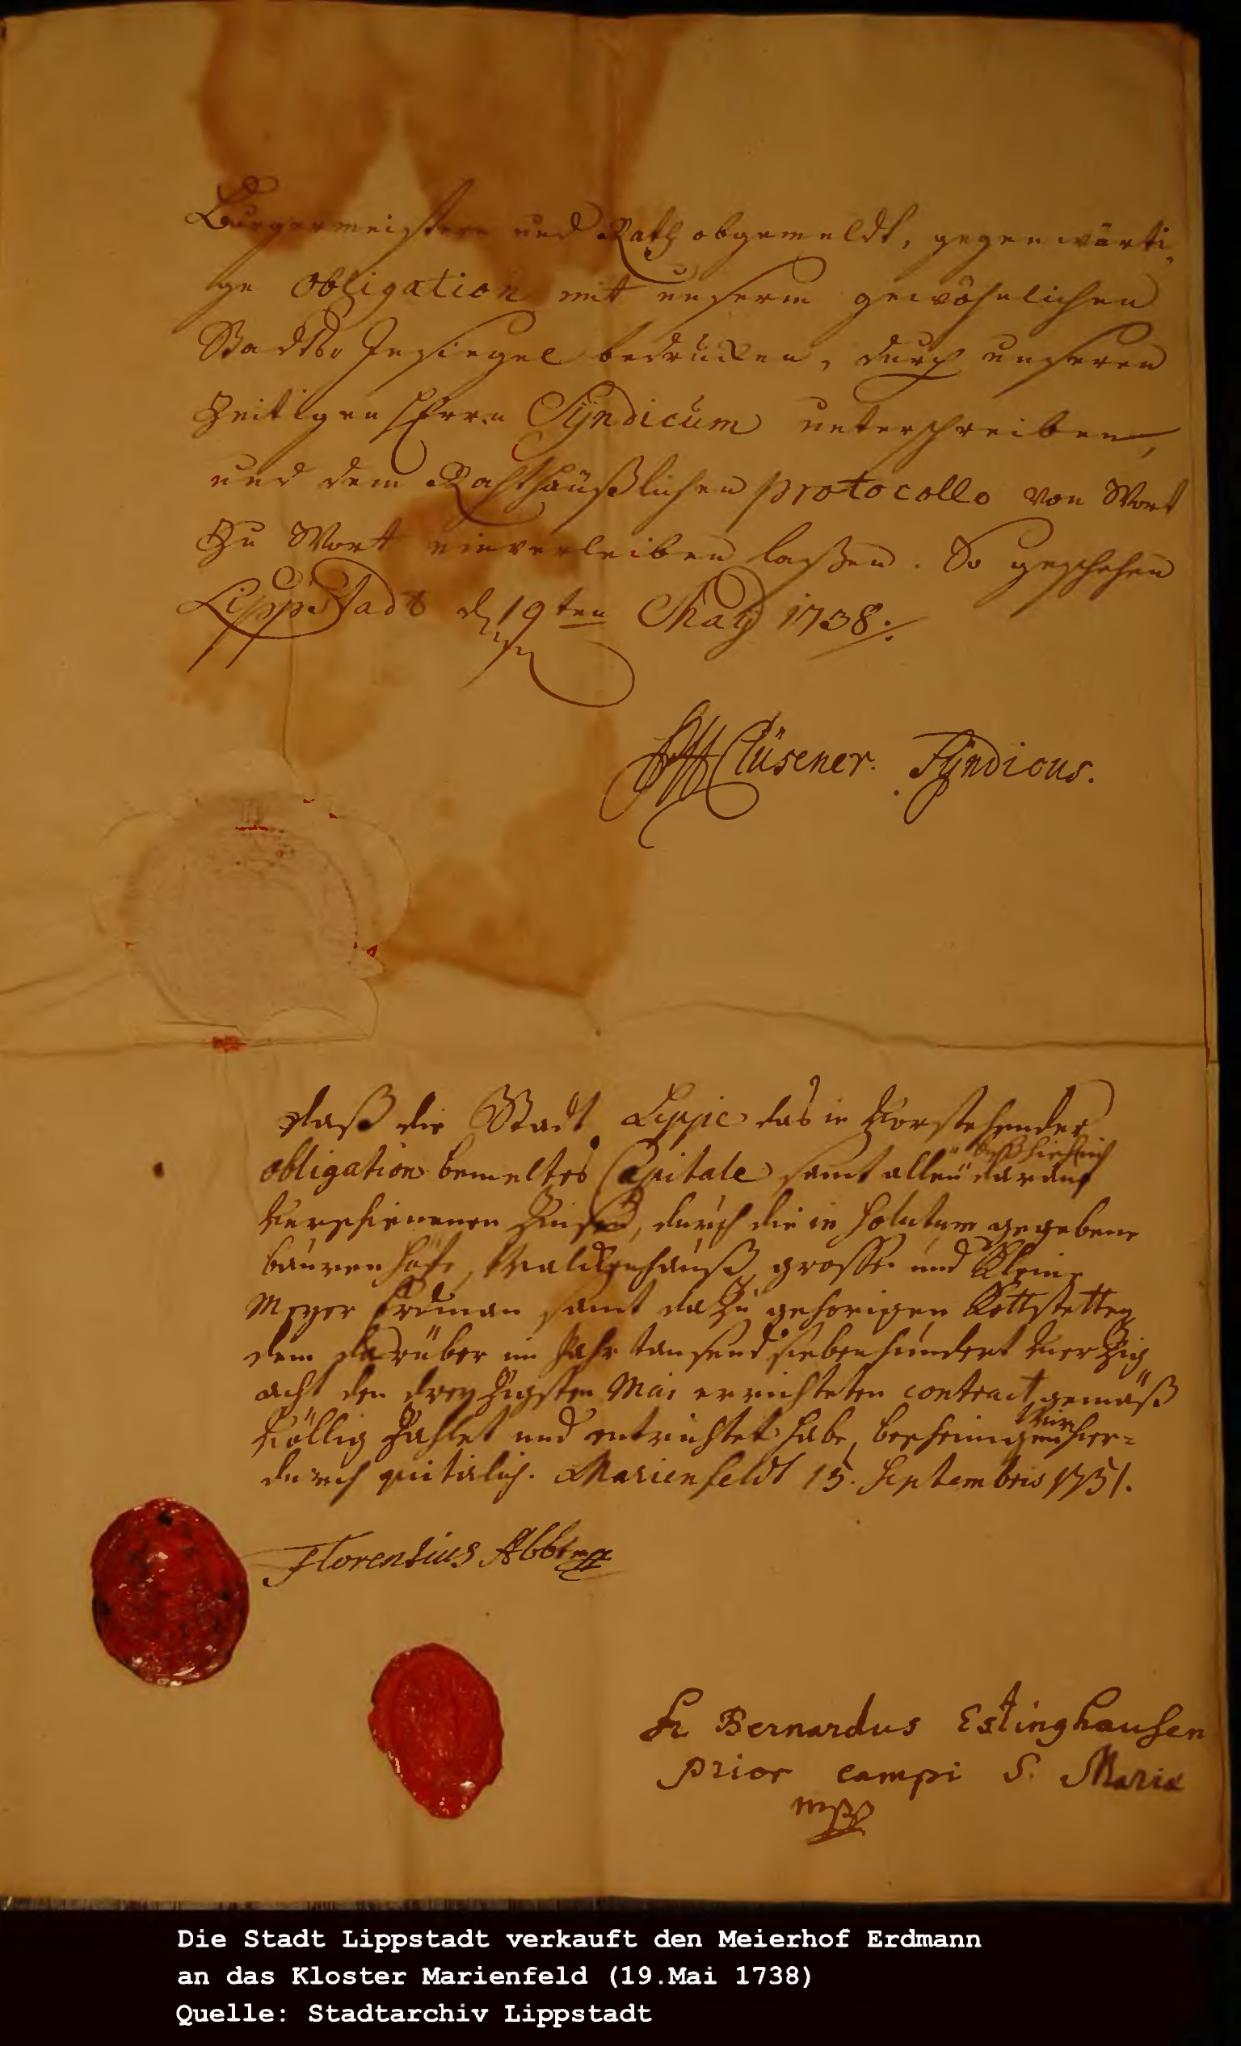 Burgermeistere und Rath obgemeldt, gegenwärti,
ge obligation mit unserm gewöhnlichen
Stadts Insiegel bedrucken, durch unseren
Zeitigen Herrn Syndicum unterschreiben,
und dem Rahthäußlichen protocollo von Wort
Zu Wort einverleiben laßen. So geschehen
Lippstadt d 19ten May 1738.
Clüsener. Syndicus.
daß die Stadt Lippie das in Vorstehender
obligation bemeltes Capitale samt allen darauf
Verschienenen Zinsen, durch die in solutum gegebene
bauren höfe, Valckenhauß, grosse und Kleine
Meyer Erdman samt dazu gehorigen Kottstetten
dem darüber im Jahr tausend siebenhundert Vierzig
acht den dreyzigsten Mai errichteten contract gemäß
Völlig Zahlet und entrichtet habe, bescheinigen wir hier=
durch quitirlich. Marienfeldt 15. Septembris 1751.
Florentius Abbt mpp
Fr Bernardus Estinghausen
prior campi S. Mariæ
mpp
Die Stadt Lippstadt verkauft den Meierhof Erdmann
an das Kloster Marienfeld (19.Mai 1738)
Quelle: Stadtarchiv Lippstadt